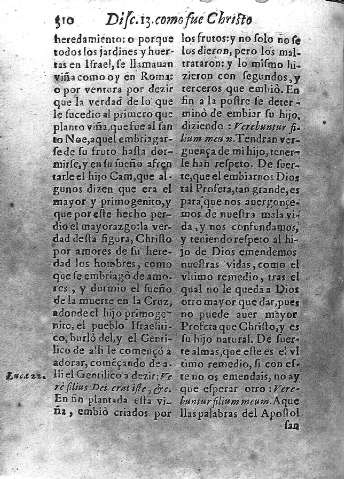 510 Disc. 13. como fue Christo
heredamiento: o porque
todos los jardines y huer-
tas en Israel, se llamauan
viña como oy en Roma:
o por ventura por dezir
que la verdad de lo que
le sucedio al primero que
planto viña, que fue al san
to Noe, aquel embriagar-
se de su fruto hasta dor-
mirse, y en su sueño afren
tarle el hijo Cam, que al-
gunos dizen que era el
mayor y primogenito, y
que por este hecho per-
dio el mayorazgo: la ver-
dad desta figura, Christo
por amores de su here-
dad los hombres, como
que se embriagò de amo-
res, y durmio el sueño
de la muerte en la Cruz,
adonde el hijo primoge-
nito, el pueblo Israeliti-
co, burlò del, y el Genti-
lico de alli le començò a
adorar, començando de a-
lli el Gentilico a dezir: Ve
rè filius Dei erat iste, &c.
En fin plantada esta vi-
ña, embiò criados por
Luc. 22.
los frutos: y no solo no se
los dieron, pero los mal-
trataron: y lo mismo hi-
zieron con segundos, y
terceros que embiò. En
fin a la postre se deter-
minò de embiar su hijo,
diziendo: Verebuntur fi-
lium meum. Tendran ver-
guença de mi hijo, tener-
le han respeto. De suer-
te, que el embiarnos Dios
tal Profeta, tan grande, es
para que nos auergonce-
mos de nuestra mala vi-
da, y nos confundamos,
y teniendo respeto al hi-
jo de Dios emendemos
nuestras vidas, como el
vltimo remedio, tras el
qual no le queda a Dios
otro mayor que dar, pues
no puede auer mayor
Profeta que Christo, y es
su hijo natural. De suer-
te almas, que este es el vl
timo remedio, si con es-
te no os emendais, no ay
que esperar otro: Vere-
buntur filium meum. A que
llas palabras del Apostol
san